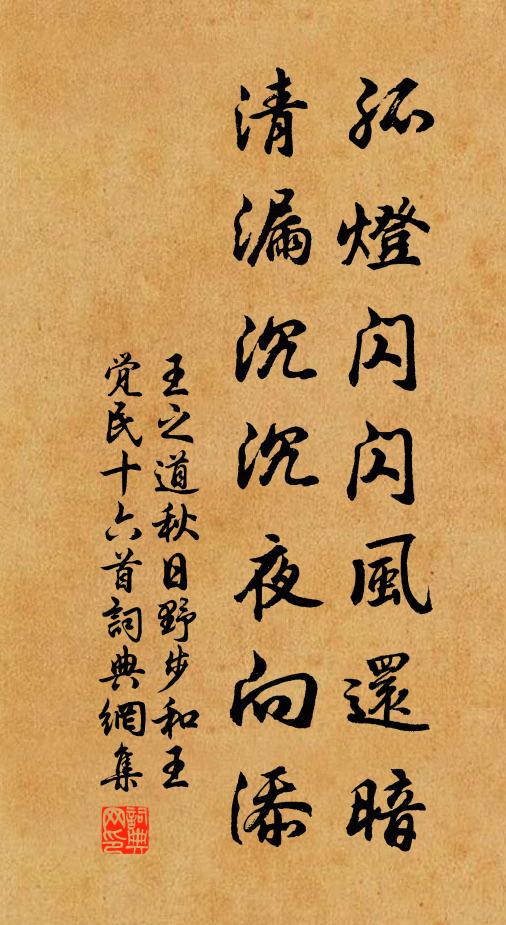 孤燈閃閃風還暗
清漏沉沉夜向添
王之道秋日野步和王
覺民十六首詞典網集
詞典
网印